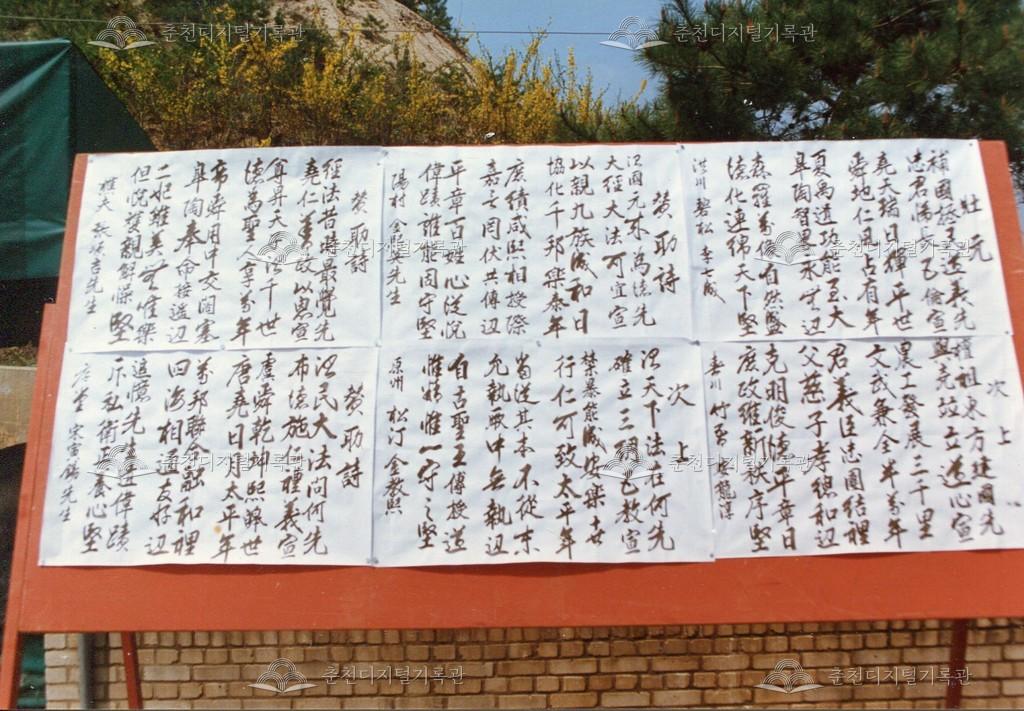 壯元
補國極王述義先
忠君
堯天瑞日輝平世
舜地仁風占有年
夏禹道功能至大
皐陶智墨永無邊
森羅萬像自然盛
德化連綿天下堅
洪川 磬松 李七成
贊助詩
大經大法可宜宣
以親九族成和日
協化千邦樂泰年
庶績咸熙相授際
嘉言罔伏共傳邊
平章百姓心從悅
偉蹟誰能固守堅
陽村 金 先生
贊助詩
經法昔時最覺先
堯仁 故以思宣
德爲聖人享萬年
帝舜用中交闢塞
皐陶奉命捨遠邊
二妃雖美無惟樂
但悅雙親解慍堅
樵夫 先生
次上
檀祖東方建國先
與克竝立遠心宣
農工發展三千里
文武兼全半萬年
君義臣忠團結裡
父慈子孝總和邊
克明俊德平章日
庶政維新秩序堅
春川 竹 龍澤
次上
治天下法在何先
確立三綱 教宣
禁暴能成安樂世
行仁可致太平年
省從其本不從末
允執厥中無執邊
自古聖王傳授道
惟精惟一守之堅
原州 松汀 金敎熙
贊助詩
治民大法問何先
布德施仁種義宣
虞舜乾坤熙 世
唐堯日月太平年
萬邦聯 融和裡
四海相通友好邊
追憶先生 偉蹟
斥私衛正養心堅
宋 錫先生
춘천디지털기록관
춘천디지털기록관
춘천디지털기록관
춘천디지털기록관
춘천디지털기록관
춘천디지털기록관
춘천디지털기록관
춘천디지털기록관